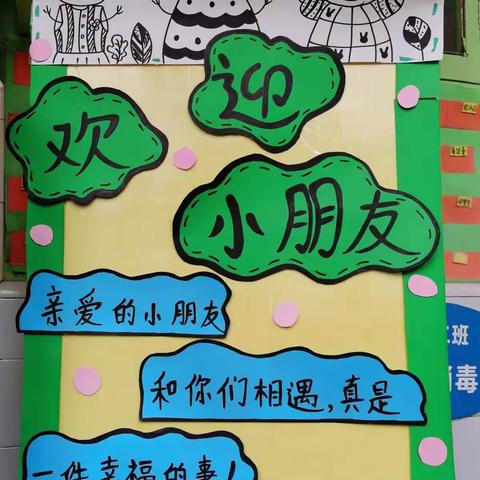 欢迎
小朋友
亲爱的小朋友
和你们相遇，真是
一件幸福的事！
班
消毒